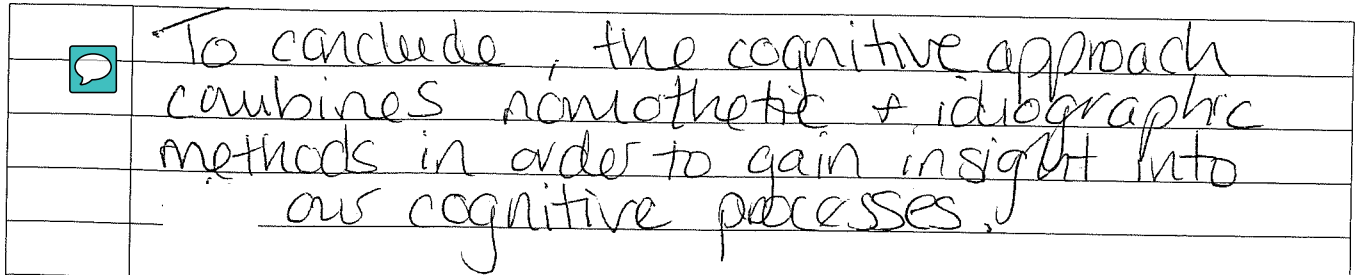 To conclude, the cognitive approach
combines nomothetic + idiographic
methods in order to gain insight into
our cognitive processes.